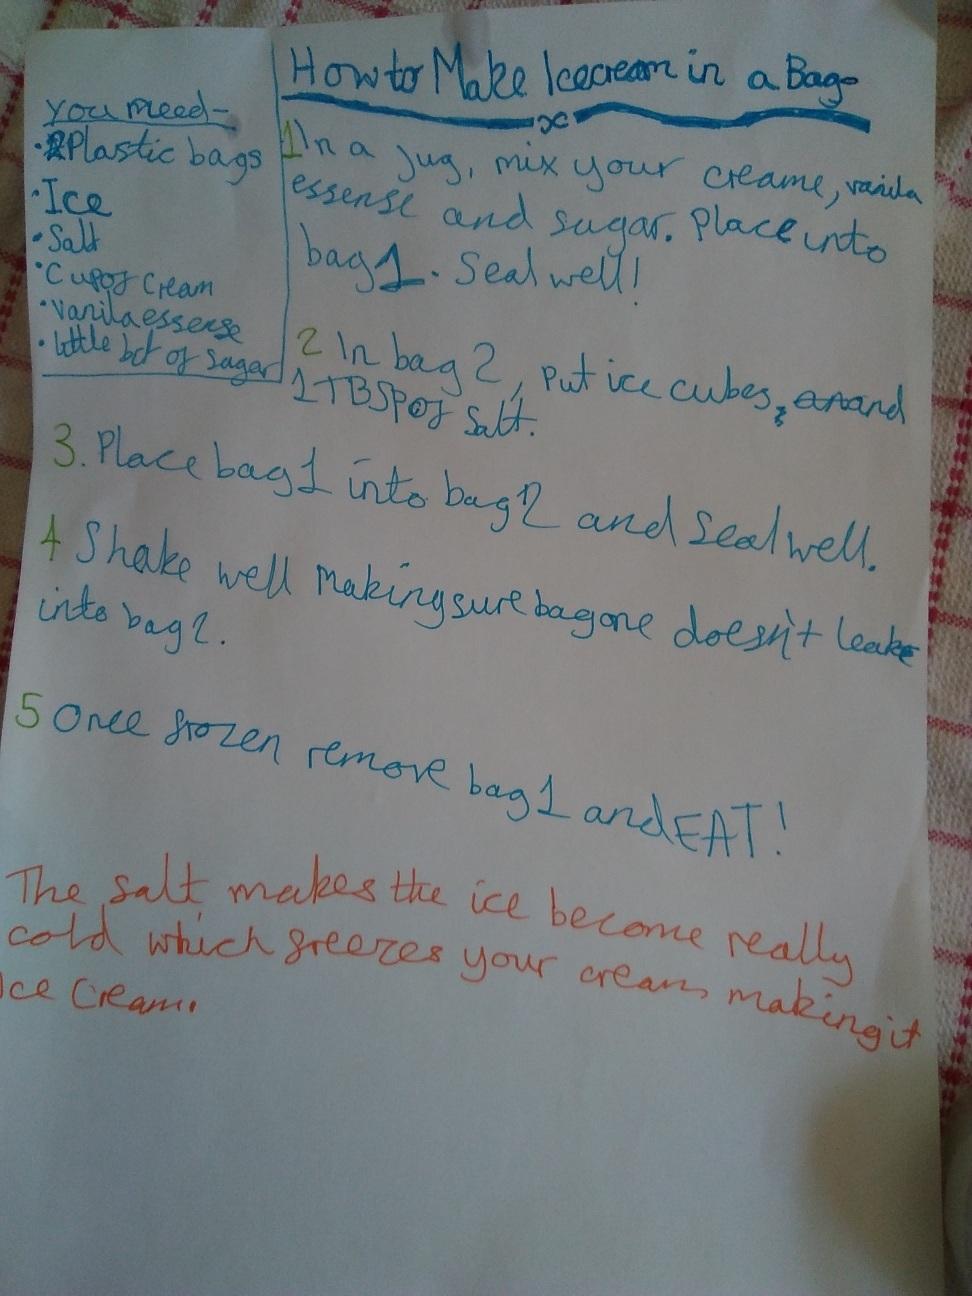 How to Make Icecream in a Bag
You need-
• 2 Plastic bags
• Ice
• Salt
• Cup of Cream
• Vanila essense
• little bit of sugar
1 In a jug, mix your creame, vanila
essense and sugar. Place into
bag 1. Seal well!
2 In bag 2, put ice cubes, and
1 TBSP of salt.
3. Place bag 1 into bag 2 and seal well.
4 Shake well making sure bag one doesn't leake
into bag 2.
5 Once frozen remove bag 1 and EAT!
The salt makes the ice become really
cold which freezes your cream, making it
Ice Cream.